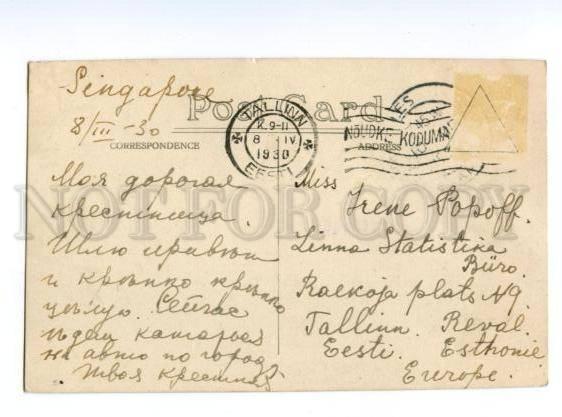 Singapore
8/III -30
Post Card
CORRESPONDENCE
ADDRESS
TALLINN
K. 9-11
8 - IV
1930
EESTI
NÕUDKE KODUMA
Моя дорогая
крестница.
Шлю привѣт
и крѣпко крѣпко
цѣлую. Сейчас
ѣдем кататься
на авто по городу.
Твоя Крестная
Miss
Irene Popoff.
Linna Statistika
Büro.
Raekoja plats N9.
Tallinn. Reval.
Eesti. Esthonie
Europe.
NOT FOR COPY